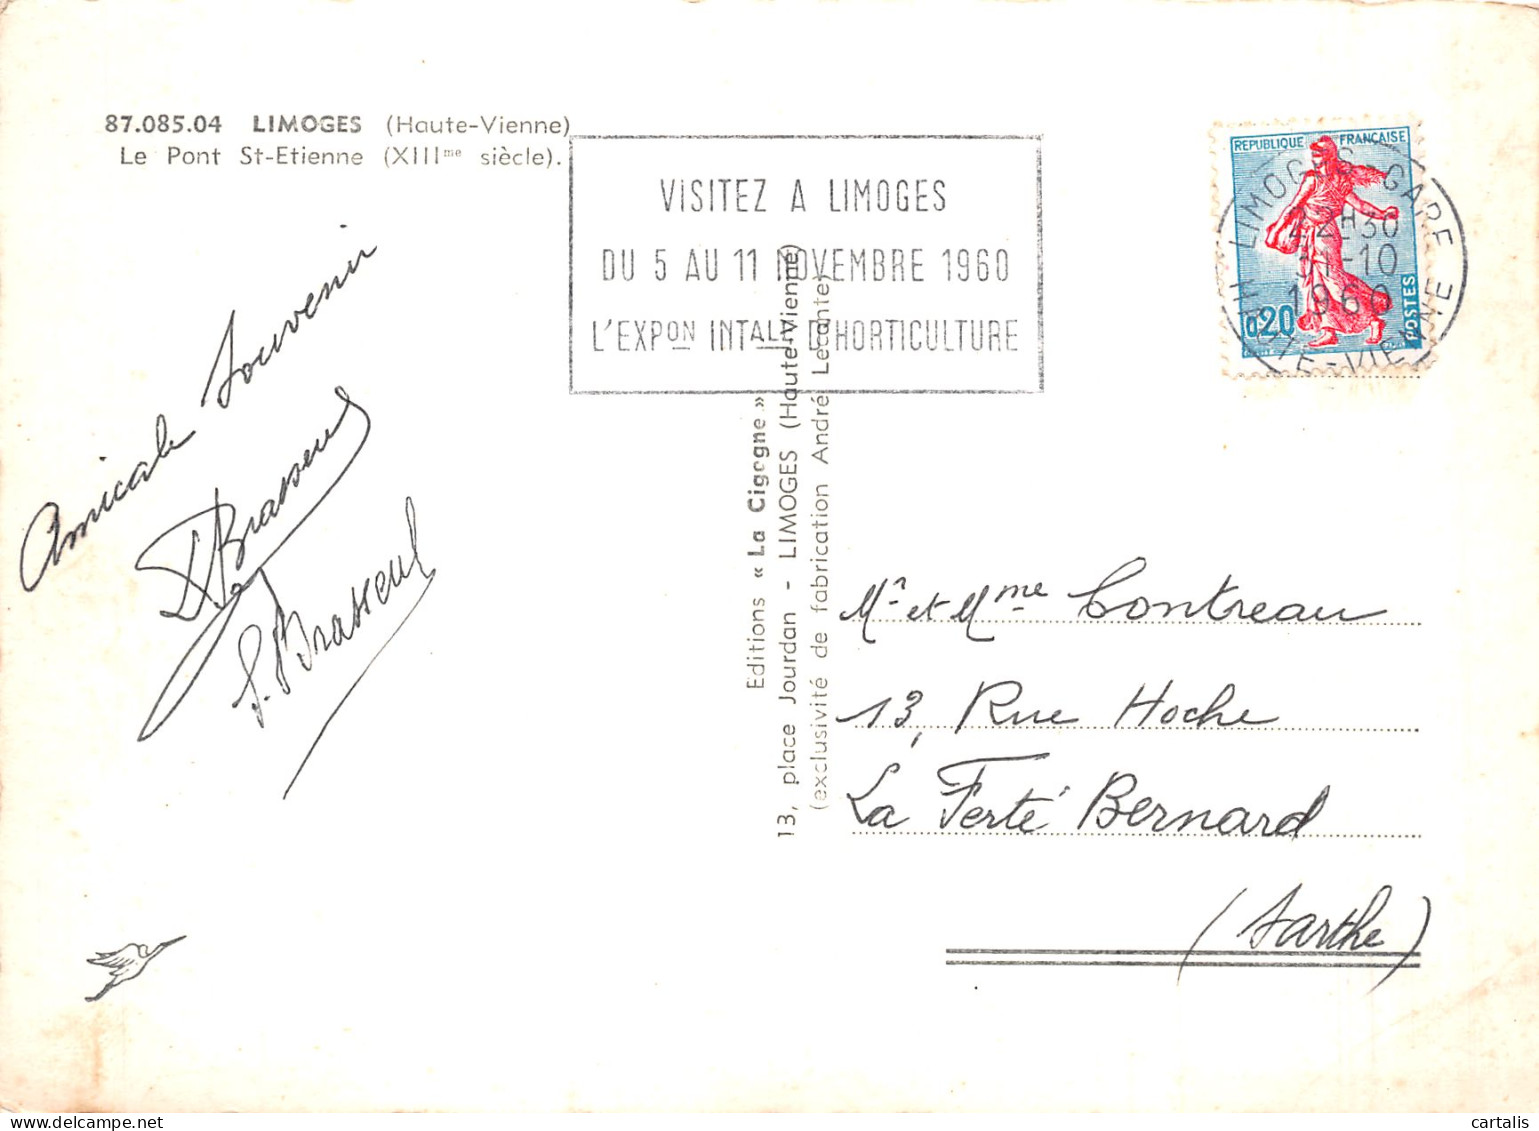 87.085.04 LIMOGES (Haute-Vienne)
Le Pont St-Etienne (XIIIme siècle).
VISITEZ A LIMOGES
DU 5 AU 11 NOVEMBRE 1960
L'EXPON INTALE D'HORTICULTURE
REPUBLIQUE FRANÇAISE
0,20
POSTES
LIMOGES GARE
22H30
31-10
1960
HTE-VIENNE
Amicale Souvenir
Brasseur
S. Brasseur
Editions « La Cigogne »
13, place Jourdan - LIMOGES (Haute-Vienne)
(exclusivité de fabrication André Leconte)
Mr et Mme Contreau
13, Rue Hoche
La Ferté Bernard
(Sarthe)
cartalis